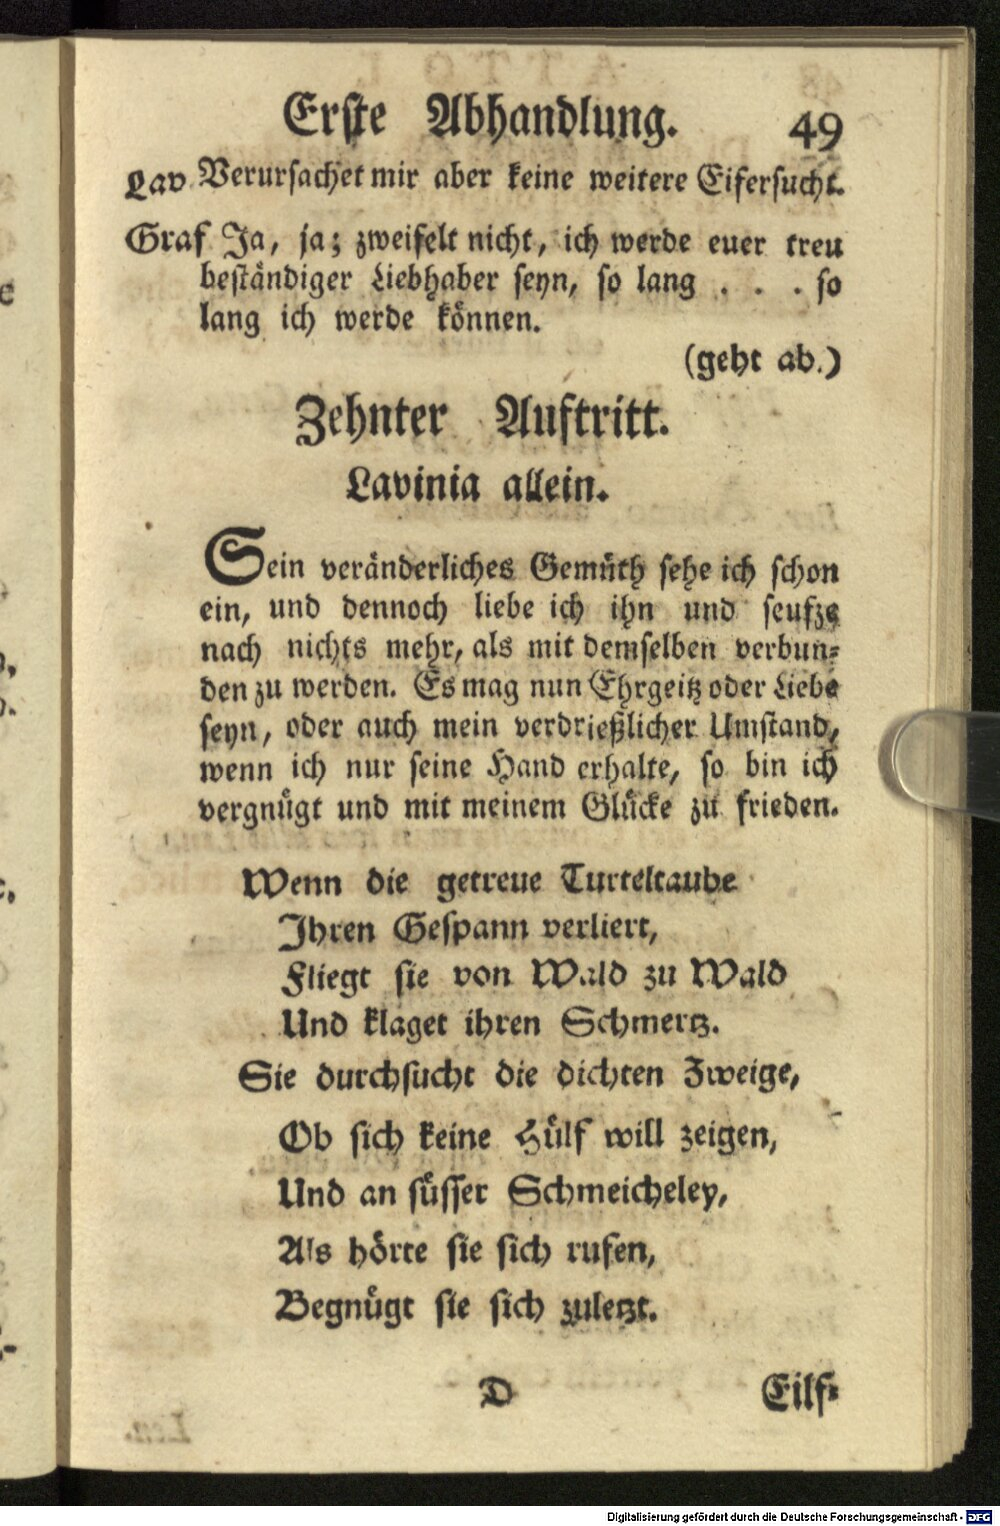 Erste Abhandlung. 49
Lav. Verursachet mir aber keine weitere Eifersucht.
Graf Ja, ja; zweifelt nicht, ich werde euer treu
beständiger Liebhaber seyn, so lang . . . so
lang ich werde können.
(geht ab.)
Zehnter Auftritt.
Lavinia allein.
Sein veränderliches Gemüth sehe ich schon
ein, und dennoch liebe ich ihn und seufze
nach nichts mehr, als mit demselben verbun=
den zu werden. Es mag nun Ehrgeitz oder Liebe
seyn, oder auch mein verdrießlicher Umstand,
wenn ich nur seine Hand erhalte, so bin ich
vergnügt und mit meinem Glücke zu frieden.
Wenn die getreue Turteltaube
Ihren Gespann verliert,
Fliegt sie von Wald zu Wald
Und klaget ihren Schmertz.
Sie durchsucht die dichten Zweige,
Ob sich keine Hülf will zeigen,
Und an süsser Schmeicheley,
Als hörte sie sich rufen,
Begnügt sie sich zuletzt.
D Eilf=
Digitalisierung gefördert durch die Deutsche Forschungsgemeinschaft - DFG